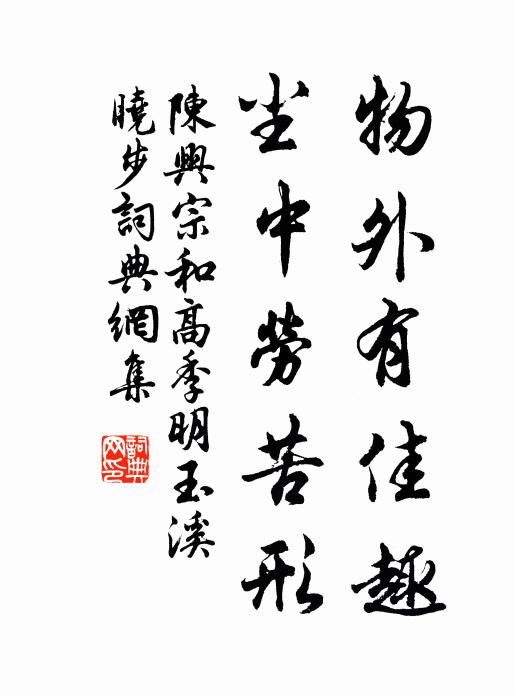 物外有佳趣
尘中勞苦形
陳興宗和高季明玉溪
曉步詞典網集
詞典
网印